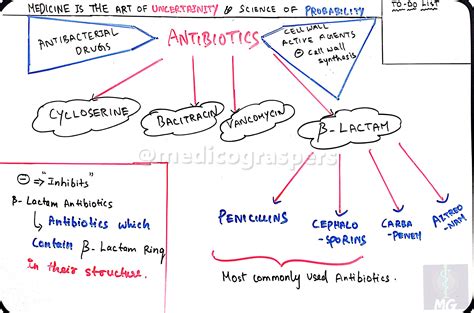 MEDICINE IS THE ART OF UNCERTAINITY & SCIENCE OF PROBABILITY
TO-DO LIST
ANTIBACTERIAL
DRUGS
ANTIBIOTICS
CELL WALL
ACTIVE AGENTS
⊖ cell wall
synthesis
CYCLOSERINE
BACITRACIN
VANCOMYCIN
β-LACTAM
@medicograspers
⊖ ⇒ "Inhibits"
β-Lactam Antibiotics
↳ Antibiotics which
contain β-Lactam Ring
in their structure.
PENICILLINS
CEPHALO
-SPORINS
CARBA
-PENEM
Most commonly used Antibiotics.
MG